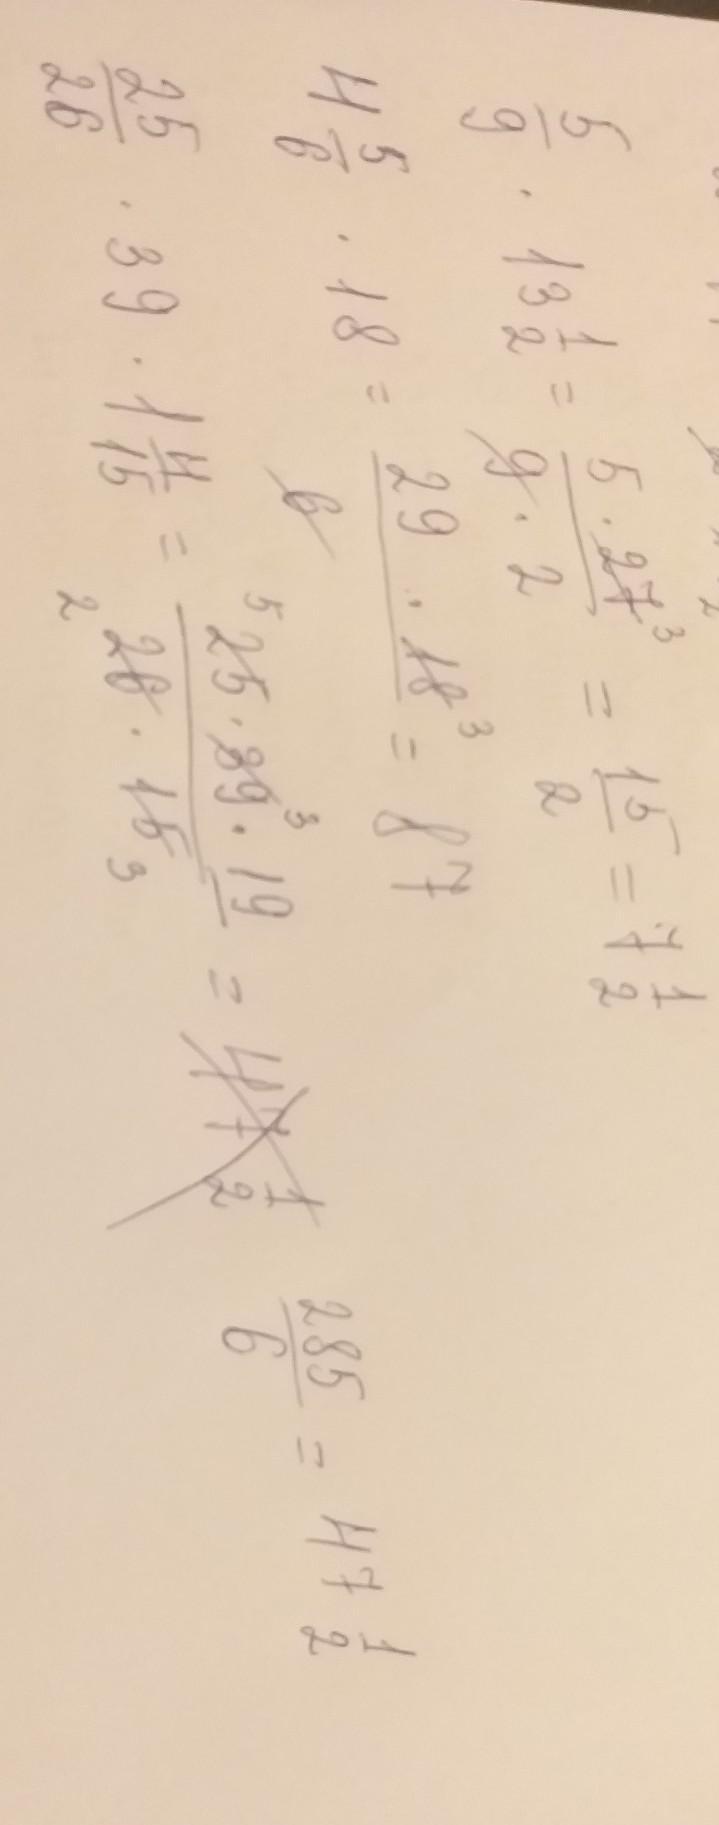 5/9 · 13 1/2 = 5 · 27³ / 9 · 2 = 15/2 = 7 1/2
4 5/6 · 18 = 29 · 18³ / 6 = 87
25/26 · 39 · 1 4/15 = ⁵25 · 39³ · 19 / ₂26 · 15₃ = 47 1/2 285/6 = 47 1/2